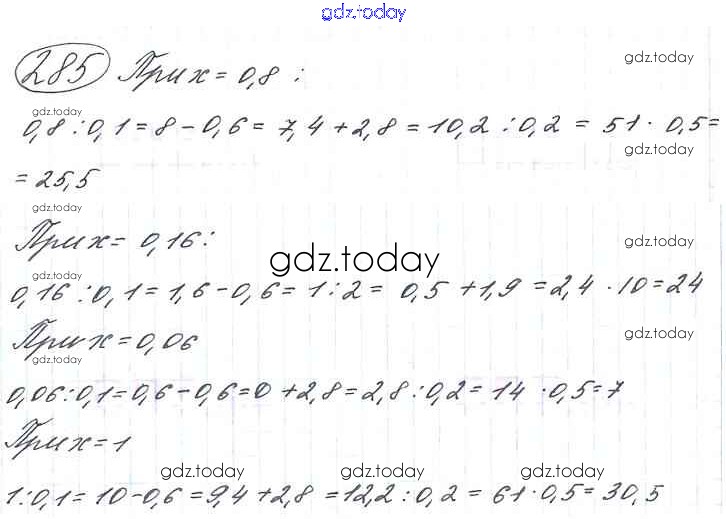 gdz.today
285 При x = 0,8 :
gdz.today
gdz.today
0,8 : 0,1 = 8 - 0,6 = 7,4 + 2,8 = 10,2 : 0,2 = 51 · 0,5 =
gdz.today
= 25,5
gdz.today
При x = 0,16 :
gdz.today
gdz.today
gdz.today
0,16 : 0,1 = 1,6 - 0,6 = 1 : 2 = 0,5 + 1,9 = 2,4 · 10 = 24
При x = 0,06
gdz.today
gdz.today
0,06 : 0,1 = 0,6 - 0,6 = 0 + 2,8 = 2,8 : 0,2 = 14 · 0,5 = 7
При x = 1
gdz.today
gdz.today
gdz.today
1 : 0,1 = 10 - 0,6 = 9,4 + 2,8 = 12,2 : 0,2 = 61 · 0,5 = 30,5